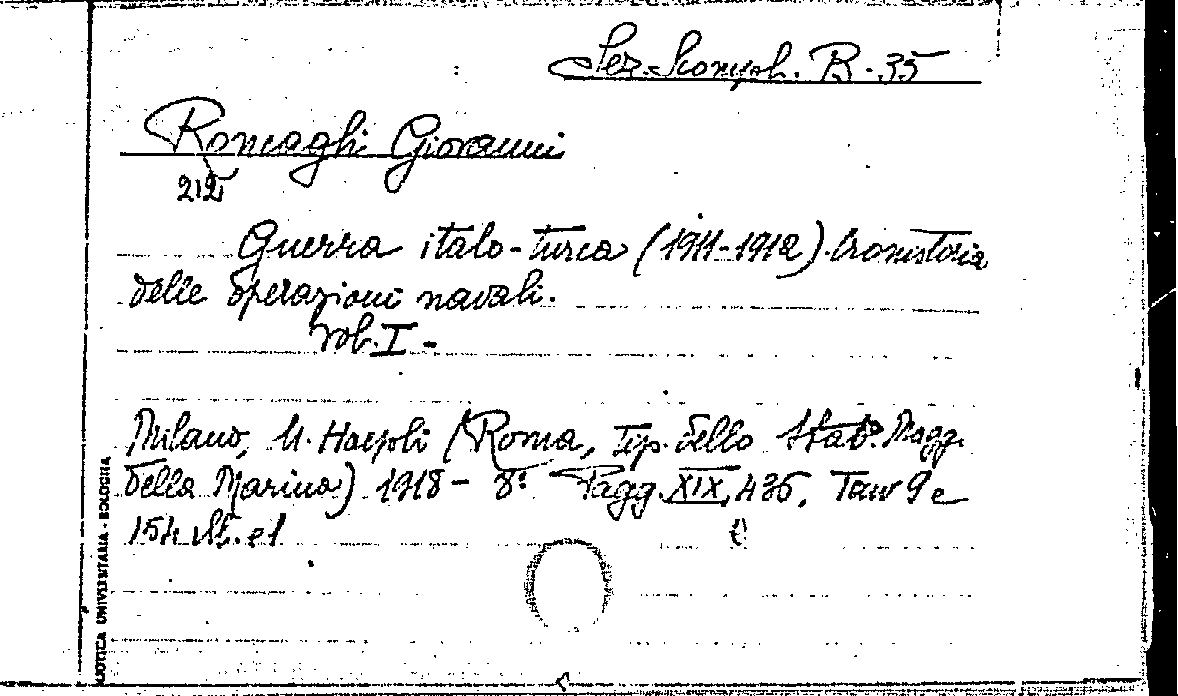 Sez. Scomph. B. 35
Roncaghi Giovanni
212
Guerra italo-turca (1911-1912). Cronistoria
delle operazioni navali.
Vol. I -
Milano, U. Hoepli (Roma, tip. dello Stab. Magg.
della Marina) 1918 - 8° Pagg. XIX, 436, Tav 9 e
154 ill. e 1
BIBLIOTECA UNIVERSITARIA - BOLOGNA